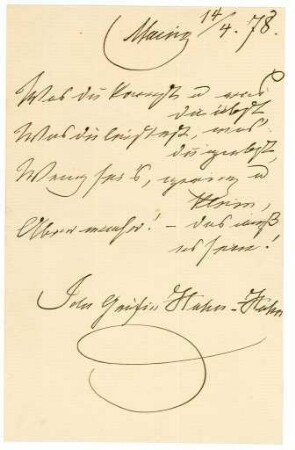 Mainz 14/4. 78.
Was du kannst u was
du übst,
Was du leistest, was
du gibst,
Wenig sei's, gering u
klein,
Aber – das muß
es sein!
Ida Gräfin Hahn-Hahn